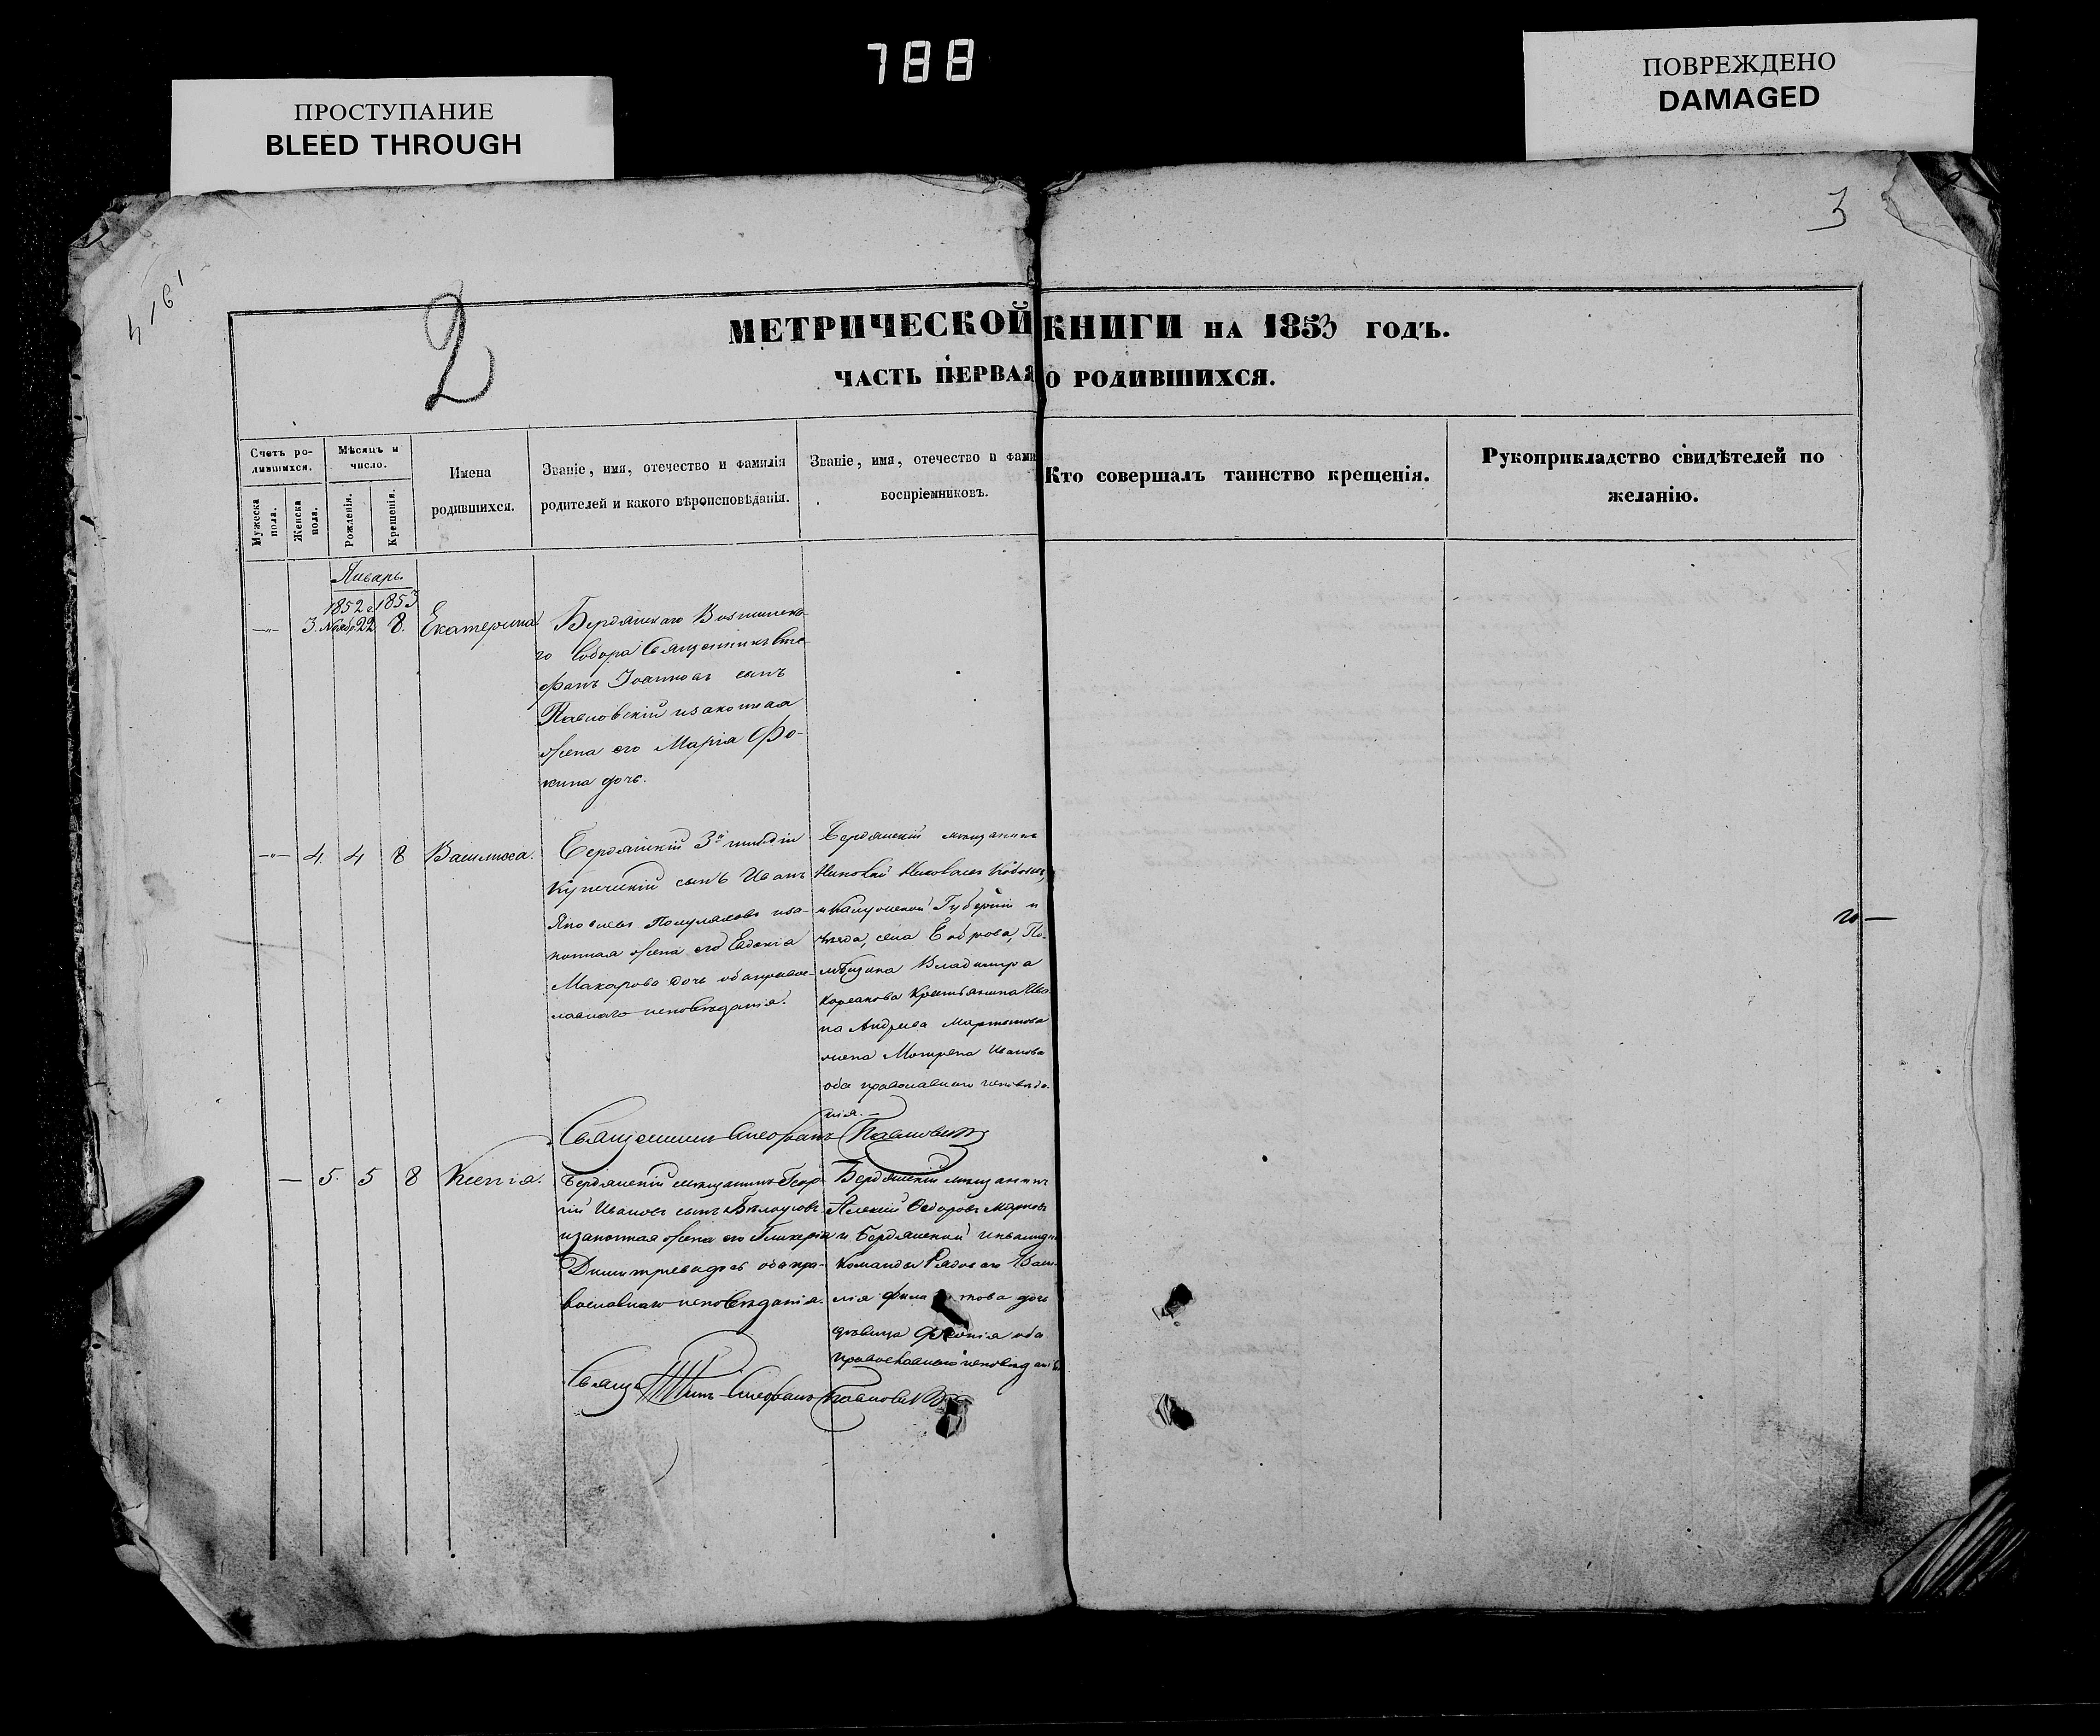 788
ПРОСТУПАНИЕ
BLEED THROUGH
ПОВРЕЖДЕНО
DAMAGED
3
2
МЕТРИЧЕСКОЙ КНИГИ НА 1853 ГОДЪ.
ЧАСТЬ ПЕРВАЯ О РОДИВШИХСЯ.
Счетъ ро-
дившихся.
Мужеска пола.
Женска пола.
Мѣсяцъ и
число.
Рожденія.
Крещенія.
Имена
родившихся.
Званіе, имя, отечество и фамилія
родителей и какого вѣроисповѣданія.
Званіе, имя, отечество и фами
воспріемниковъ.
Кто совершалъ таинство крещенія.
Рукоприкладство свидѣтелей по
желанію.
Январь.
1852 г. 1853
—"— 3. Ноябр. 22 8. Екатерина
Бердянскаго Вознинска-
го Собора Священникъ Сте-
фанъ Іоанновъ сынъ
Павловскій и законная
жена его Марія Фо-
кина дочь.
—"— 4. 4 8 Василиса.
Бердянскій 3й гильдіи
Купеческій сынъ Иванъ
Яковлевъ и за-
конная жена его Евдокія
Макарова дочь оба правос-
лавнаго исповѣданія.
Бердянскій мещанинъ
Николай Николаевъ
и Калужской Губерніи и
уѣзда, села
Владимира
Крестьянина Ива
на Андреева Мартынова
жена Матрена Иванова
оба православнаго исповѣда-
нія.—
Священникъ Стефанъ Павловскій
— 5. 5 8 Ксенія.
Бердянскій мещанинъ Геор-
гій Ивановъ сынъ Бѣлоусовъ
и законная жена его Гликерія
Димитріева дочь оба пра-
вославнаго исповѣданія.
Бердянскій мещанинъ
Алексій Ѳедоровъ Марковъ
и Бердянской инвалидн
Команды Рядоваго Васи-
лія дочь
дѣвица оба
православнаго исповѣданія
Священникъ Стефанъ Павловскій